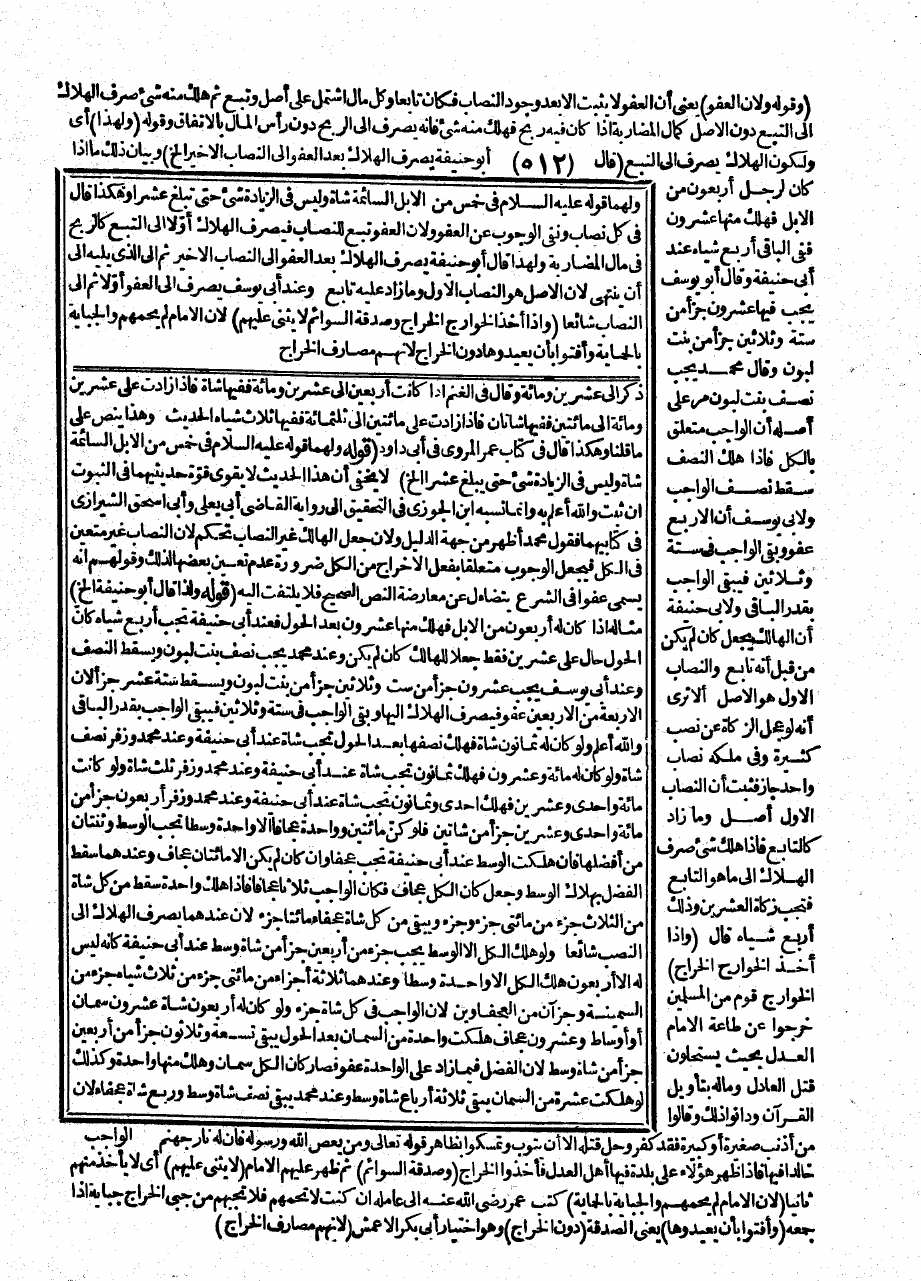 (وقوله ولان العفو) يعنى أن العفو لا يثبت الا بعد وجود النصاب فكان تابعا وكل مال اشتمل على أصل وتبع ثم هلك منه شئ صرف الهلاك
الى التبع دون الاصل كمال المضاربة اذا كان فيه ربح فهلك منه شئ فانه يصرف الى الربح دون رأس المال بالاتفاق وقوله (ولهذا) أى
ولكون الهلاك يصرف الى التبع (قال (٥١٢) أبو حنيفة يصرف الهلاك بعد العفو الى النصاب الاخير الخ) وبيان ذلك ما اذا
كان لرجل أربعون من
الابل فهلك منها عشرون
ففى الباقى أربع شياه عند
أبى حنيفة وقال أبو يوسف
يجب فيها عشرون جزأ من
ستة وثلاثين جزأ من بنت
لبون وقال محمد يجب
نصف بنت لبون مر على
أصله أن الواجب متعلق
بالكل فاذا هلك النصف
سقط نصف الواجب
ولابى يوسف أن الاربع
عفو وبقى الواجب فى ستة
وثلاثين فيبقى الواجب
بقدر الباقى ولابى حنيفة
أن الهالك يجعل كان لم يكن
من قبل أنه تابع والنصاب
الاول هو الاصل ألا ترى
أنه لو عجل الزكاة عن نصب
كثيرة وفى ملكه نصاب
واحد جاز فثبت أن النصاب
الاول أصل وما زاد
كالتابع فاذا هلك شئ صرف
الهلاك الى ما هو التابع
فتجب زكاة العشرين وذلك
أربع شياه قال (واذا
أخذ الخوارج الخراج)
الخوارج قوم من المسلمين
خرجوا عن طاعة الامام
العدل بحيث يستحلون
قتل العادل وماله بتأويل
القرآن ودانوا ذلك وقالوا
من أذنب صغيرة أو كبيرة فقد كفر وحل قتله الا أن يتوب وتمسكوا بظاهر قوله تعالى ومن يعص الله ورسوله فان له نار جهنم
خالدا فيها فاذا ظهر هؤلاء على بلدة فيها أهل العدل فأخذوا الخراج (وصدقة السوائم) ثم ظهر عليهم الامام (لا يثنى عليهم) أى لا يأخذ منهم
ثانيا (لان الامام لم يحمهم والجباية بالحماية) كتب عمر رضى الله عنه الى عامله ان كنت لا تحمهم فلا تجبهم من جبى الخراج جباية اذا
جمعه (وأفتوا بأن يعيدوها) يعنى الصدقة (دون الخراج) وهو اختيار أبى بكر الاعمش (لانهم مصارف الخراج)
ولهما قوله عليه السلام فى خمس من الابل السائمة شاة وليس فى الزيادة شئ حتى تبلغ عشرا وهكذا قال
فى كل نصاب ونفى الوجوب عن العفو ولان العفو تبع للنصاب فيصرف الهلاك أولا الى التبع كالربح
فى مال المضاربة ولهذا قال أبو حنيفة يصرف الهلاك بعد العفو الى النصاب الاخير ثم الى الذى يليه الى
أن ينتهى لان الاصل هو النصاب الاول وما زاد عليه تابع وعند أبى يوسف يصرف الى العفو أولا ثم الى
النصاب شائعا (واذا أخذ الخوارج الخراج وصدقة السوائم لا يثنى عليهم) لان الامام لم يحمهم والجباية
بالحماية وأفتوا بأن يعيدوها دون الخراج لانهم مصارف الخراج
ذكر الى عشرين ومائة وقال فى الغنم اذا كانت أربعين الى عشرين ومائة ففيها شاة فاذا زادت على عشرين
ومائة الى مائتين ففيها شاتان فاذا زادت على مائتين الى ثلثمائة ففيها ثلاث شياه الحديث وهذا ينص على
ما قلنا وهكذا قال فى كتاب عمر المروى فى أبى داود (قوله ولهما قوله عليه السلام فى خمس من الابل السائمة
شاة وليس فى الزيادة شئ حتى يبلغ عشرا الخ) لا يخفى أن هذا الحديث لا يقوى قوة حديثيهما فى الثبوت
ان ثبت والله أعلم به وانما نسبه ابن الجوزى فى التحقيق الى رواية القاضى أبى يعلى وأبى اسحق الشيرازى
فى كتابيهما فقول محمد أظهر من جهة الدليل ولان جعل الهالك غير النصاب تحكم لان النصاب غير متعين
فى الكل فيجعل الوجوب متعلقا بفعل الاخراج من الكل ضرورة عدم تعين بعض لذلك وقولهم انه
يسمى عفوا فى الشرع يتضاءل عن معارضة النص الصحيح فلا يلتفت اليه (قوله ولذا قال أبو حنيفة الخ)
مثاله اذا كان له أربعون من الابل فهلك منها عشرون بعد الحول فعند أبى حنيفة تجب أربع شياه كان
الحول حال على عشرين فقط جعلا للهالك كان لم يكن وعند محمد يجب نصف بنت لبون ويسقط النصف
وعند أبى يوسف يجب عشرون جزأ من ست وثلاثين جزأ من بنت لبون ويسقط ستة عشر جزأ لان
الاربعة من الاربعين عفو فيصرف الهلاك اليها وبقى الواجب فى ستة وثلاثين فيبقى الواجب بقدر الباقى
والله أعلم ولو كان له ثمانون شاة فهلك نصفها بعد الحول تجب شاة عند أبى حنيفة وعند محمد وزفر نصف
شاة ولو كان له مائة وعشرون فهلك ثمانون تجب شاة عند أبى حنيفة وعند محمد وزفر ثلث شاة ولو كانت
مائة واحدى وعشرين فهلك احدى وثمانون تجب شاة عند أبى حنيفة وعند محمد وزفر أربعون جزأ من
مائة واحدى وعشرين جزأ من شاتين فلو كن مائتين وواحدة عجافا الا واحدة وسطا تجب الوسط وثنتان
من أفضلها فان هلكت الوسط عند أبى حنيفة يجب عجفاوان كان لم يكن الا مائتان عجاف وعندهما سقط
الفضل بهلاك الوسط وجعل كان الكل عجاف فكان الواجب ثلاثا عجافا فاذا هلك واحدة سقط من كل شاة
من الثلاث جزء من مائتى جزء وجزء ويبقى من كل شاة عجفاء مائتا جزء لان عندهما يصرف الهلاك الى
النصب شائعا ولو هلك الكل الا الوسط يجب جزء من أربعين جزأ من شاة وسط عند أبى حنيفة كانه ليس
له الا أربعون هلك الكل الا واحدة وسطا وعندهما ثلاثة أجزاء من مائتى جزء من ثلاث شياه جزء من
السمينة وجزآن من العجفاوين لان الواجب فى كل شاة جزء ولو كان له أربعون شاة عشرون سمان
أو أوساط وعشرون عجاف هلكت واحدة من السمان بعد الحول يبقى تسعة وثلاثون جزأ من أربعين
جزأ من شاة وسط لان الفضل فيما زاد على الواحدة عفو فصار كان الكل سمان وهلك منها واحدة وكذلك
لو هلكت عشرة من السمان يبقى ثلاثة أرباع شاة وسط وعند محمد يبقى نصف شاة وسط وربع شاة عجفاء لان
الواجب